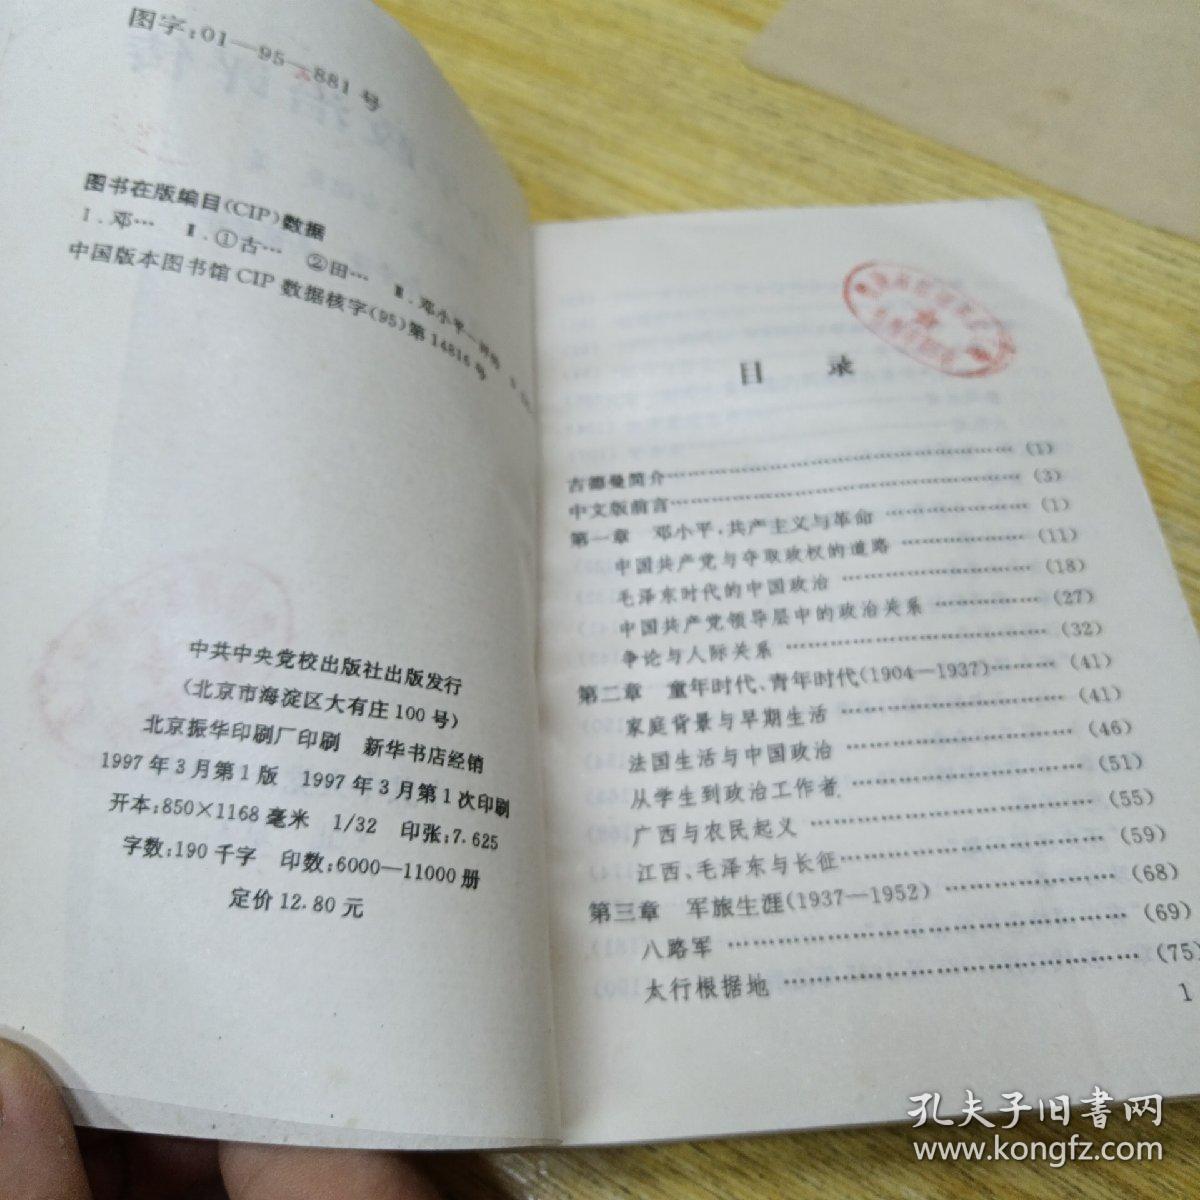 图字:01—95—881号
图书在版编目(CIP)数据
Ⅰ.邓… Ⅱ.①古… ②田… Ⅲ.邓小平—评传
中国版本图书馆CIP数据核字(95)第14816号
中共中央党校出版社出版发行
(北京市海淀区大有庄100号)
北京振华印刷厂印刷 新华书店经销
1997年3月第1版 1997年3月第1次印刷
开本:850×1168毫米 1/32 印张:7.625
字数:190千字 印数:6000—11000册
定价12.80元
目 录
古德曼简介……(1)
中文版前言……(3)
第一章 邓小平,共产主义与革命……(1)
中国共产党与夺取政权的道路……(11)
毛泽东时代的中国政治……(18)
中国共产党领导层中的政治关系……(27)
争论与人际关系……(32)
第二章 童年时代、青年时代(1904—1937)……(41)
家庭背景与早期生活……(41)
法国生活与中国政治……(46)
从学生到政治工作者……(51)
广西与农民起义……(55)
江西、毛泽东与长征……(59)
第三章 军旅生涯(1937—1952)……(68)
八路军……(69)
太行根据地……(75)
1
孔夫子旧书网
www.kongfz.com